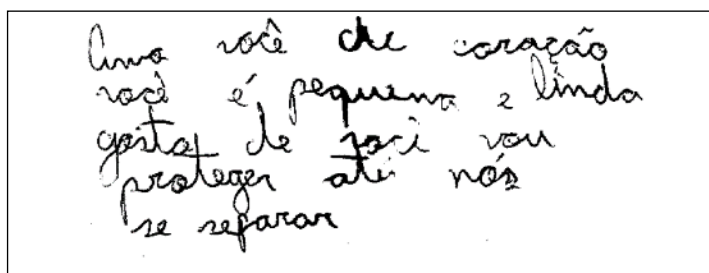 Amo você de coração
você é pequena e linda
gosto de você vou
proteger até nós
se separar